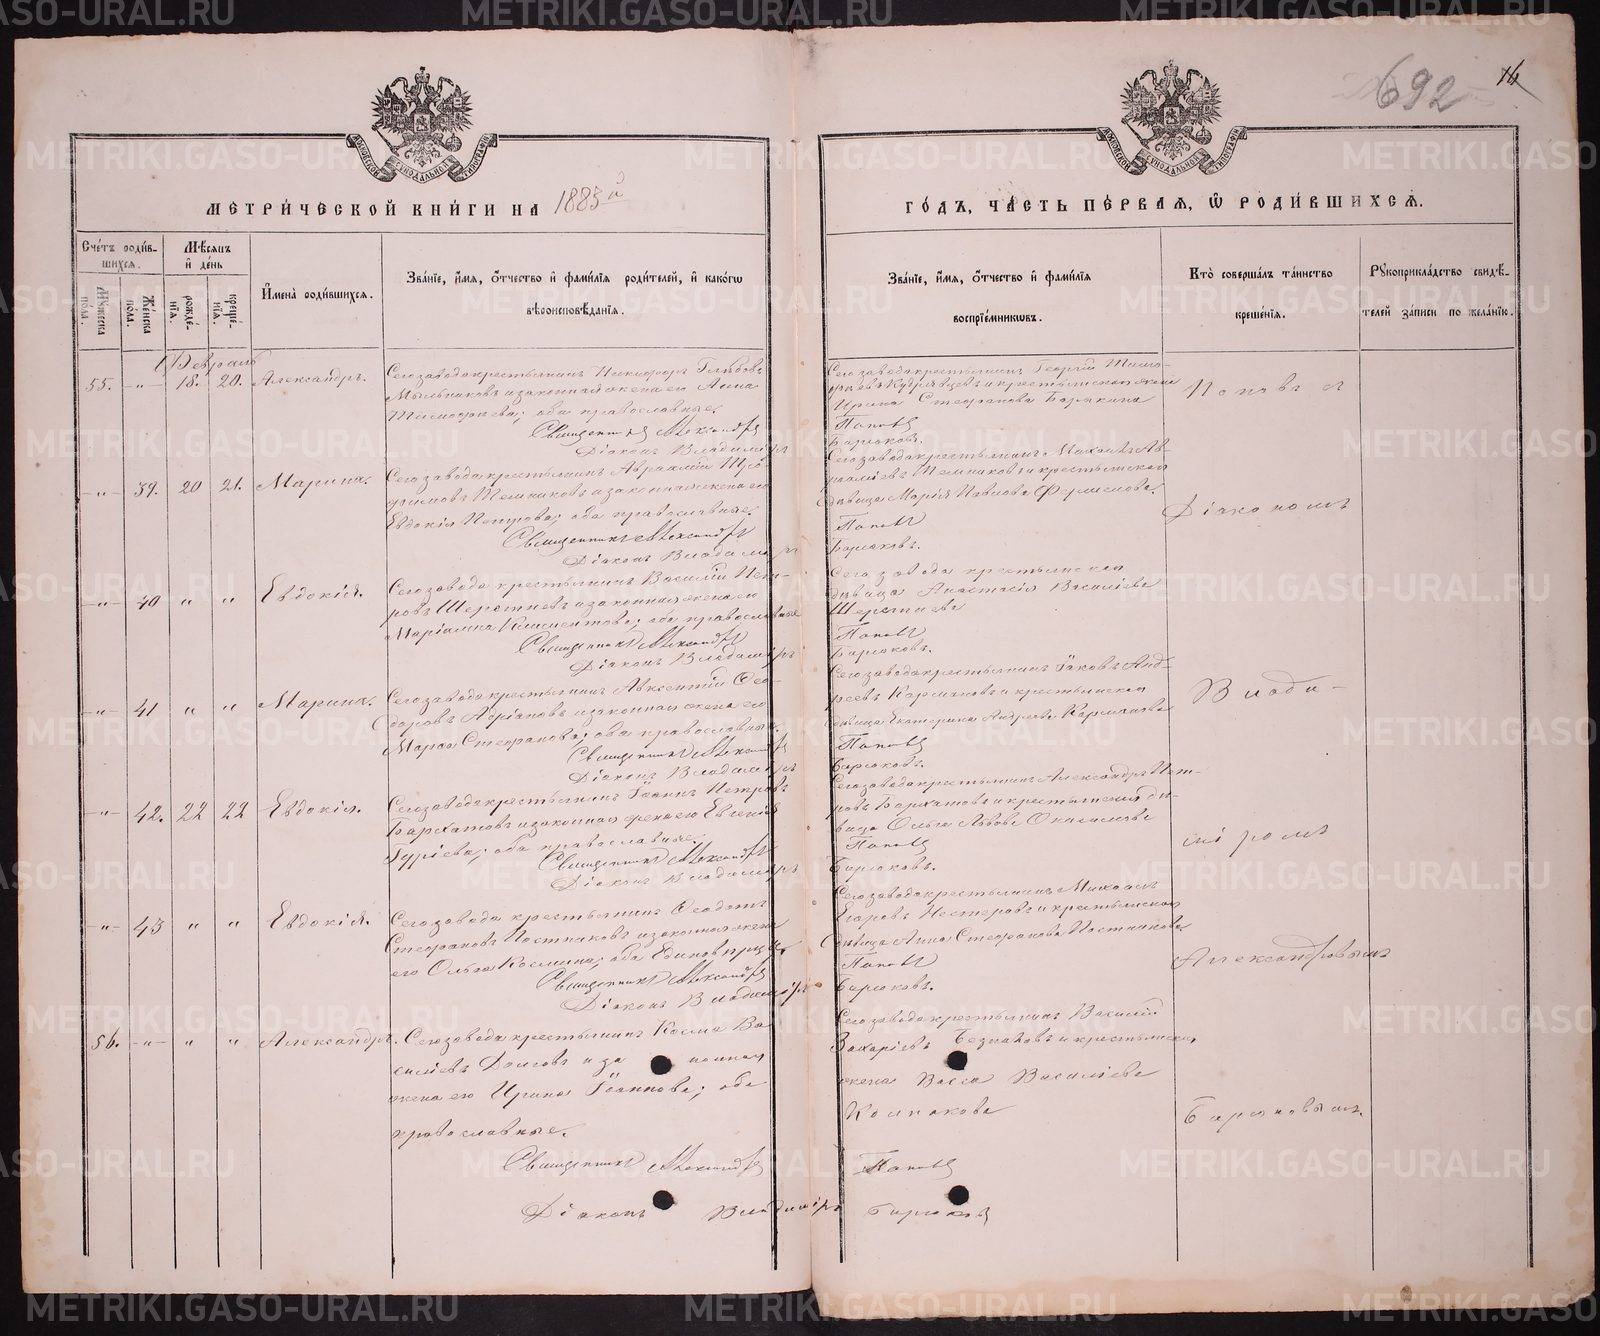 692
16
МЕТРИ́ЧЕСКОЙ КНИ́ГИ НА 1883й
ГО́ДЪ, ЧА́СТЬ ПЕ́РВАЯ, Ѡ҆ РОДИ́ВШИХСЯ.
Сче́тъ роди́вшихся.
Мѣ́сяцъ и҆ де́нь
Мꙋ́жеска по́ла.
Же́нска по́ла.
рожде́нїѧ.
креще́нїѧ.
И҆мена̀ роди́вшихся.
Зва́нїе, и҆́мя, ѻ҆́тчество и҆ фами́лїя роди́телей, и҆ како́гѡ
вѣроисповѣ́данїя.
Зва́нїе, и҆́мя, ѻ҆́тчество и҆ фами́лїя
воспрїе́мникѡвъ.
Кто̀ соверша́лъ та́инство
креще́нїя.
Рꙋкоприкла́дство свидѣ́-
телей за́писи по жела́нїю.
Февраль
55. -"- 18. 20. Александръ.
Сего завода крестьянинъ Никифоръ Глѣбовъ
Мыльниковъ и законная жена его Анна
Тимофеева; оба православные.
Священникъ Александръ
Діаконъ Владиміръ
Сего завода крестьянинъ Георгій Тимо-
феевъ Кудрявцевъ и крестьянская жена
Ирина Стефанова Борякина
Поповъ
Бирюковъ.
-"- 39. 20 21. Марина.
Сего завода крестьянинъ Авраамій Тро-
фимовъ Темниковъ и законная жена его
Евдокія Петрова; оба православные.
Священникъ Александръ
Діаконъ Владиміръ
Сего завода крестьянинъ Михаилъ Ав-
раміевъ Темниковъ и крестьянская
дѣвица Марія Павлова
Поповъ
Бирюковъ.
-"- 40 " " Евдокія.
Сего завода крестьянинъ Василій Пет-
ровъ и законная жена его
Маріамна Климентова; оба православные
Священникъ Александръ
Діаконъ Владиміръ
Сего завода крестьянская
дѣвица Анастасія Васильева
Поповъ
Бирюковъ.
-"- 41 " " Марина.
Сего завода крестьянинъ Авксентій Ѳео-
доровъ Адріановъ и законная жена его
Марѳа Стефанова; оба православные.
Священникъ Александръ
Діаконъ Владиміръ
Сего завода крестьянинъ Іаковъ Анд-
реевъ Кармановъ и крестьянская
дѣвица Екатерина Андреева Карманова
Поповъ
Бирюковъ.
-"- 42. 22 22 Евдокія.
Сего завода крестьянинъ Іоаннъ Петровъ
Бархатовъ и законная жена его Евгенія
Гуріева; оба православные.
Священникъ Александръ
Діаконъ Владиміръ
Сего завода крестьянинъ Александръ Пет-
ровъ Бархатовъ и крестьянская дѣ-
вица Ольга Львова
Поповъ
Бирюковъ.
-"- 43 " " Евдокія.
Сего завода крестьянинъ Ѳеодотъ
Стефановъ Постниковъ и законная жена
его Ольга Космина; оба Единовѣрцы.
Священникъ Александръ
Діаконъ Владиміръ
Сего завода крестьянинъ Михаилъ
Егоровъ Нестеровъ и крестьянская
дѣвица Анна Стефанова Постникова
Поповъ
Бирюковъ.
56. -"- " " Александръ.
Сего завода крестьянинъ Косма Ва-
силіевъ Долговъ и законная
жена его Ирина Іоаннова; оба
православные.
Священникъ Александръ
Діаконъ Владиміръ
Сего завода крестьянинъ Василій
Захаріевъ и крестьянская
жена Васса Василіева
Колпакова
Поповъ
Бирюковъ
Поповъ и
Діакономъ
Влади-
міромъ
Александровымъ
Бирюковымъ.
METRIKI.GASO-URAL.RU